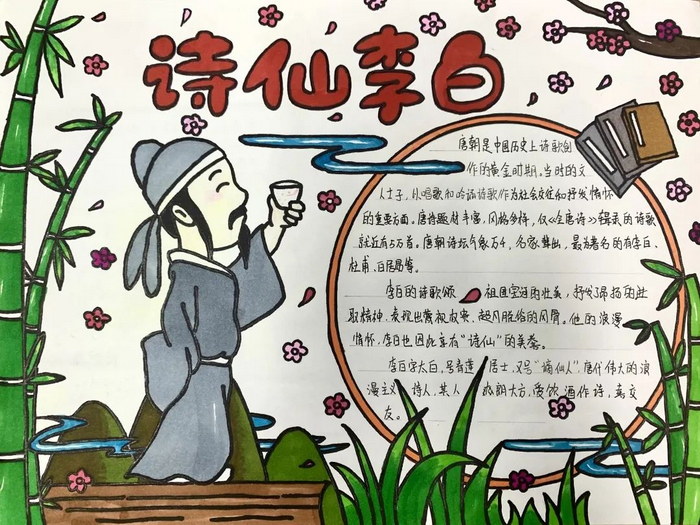 诗仙李白
唐朝是中国历史上诗歌创
作的黄金时期。当时的文
人士子,以唱歌和吟诵诗歌作为社会交往和抒发情怀
的重要方面。唐诗题材丰富,风格多样,仅《全唐诗》辑录的诗歌
就近有5万首。唐朝诗坛气象万千,名家辈出,最为著名的有李白、
杜甫、白居易等。
李白的诗歌颂 祖国山河的壮美,抒发了昂扬的进
取精神,表现出蔑视皮束、超凡脱俗的风骨。他的浪漫
情怀,李白也因此享有“诗仙”的美誉。
李白字太白,号青莲居士,又号“谪仙人”唐代伟大的浪
漫主义 诗人,其人 爽朗大方,爱饮酒作诗,喜交
友。